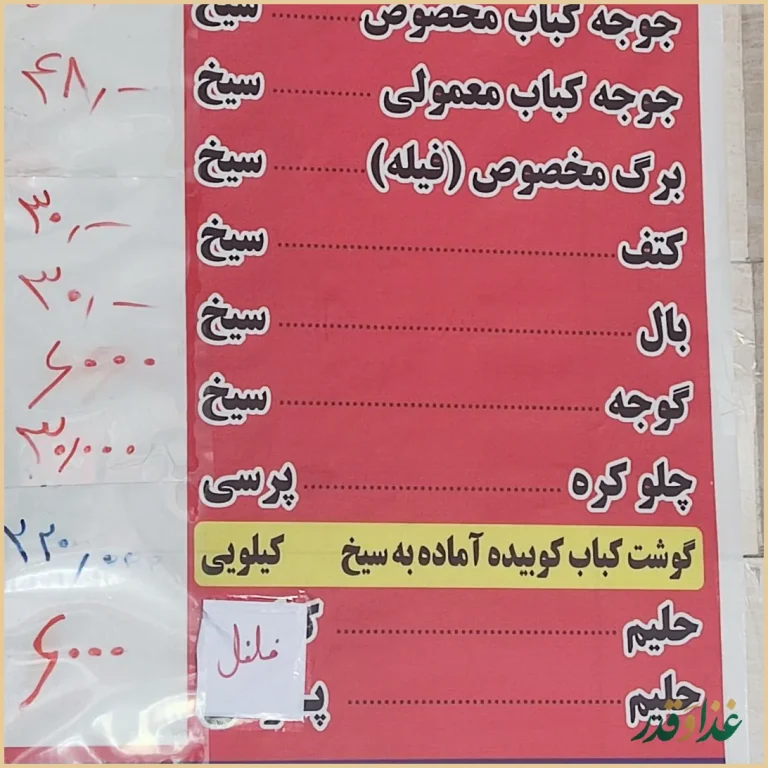 جوجه کباب مخصوص ............ سیخ
جوجه کباب معمولی ............ سیخ ۴۸٫-
برگ مخصوص (فیله) ............ سیخ
کتف ............ سیخ ۳۰٫-
بال ............ سیخ ۳۰٫-
گوجه ............ سیخ ۶۰۰۰
چلو کره ............ پرسی ۳۰٫۰۰۰
گوشت کباب کوبیده آماده به سیخ کیلویی ۲۲۰٫۰۰۰
حلیم ............
فلفل ۶۰۰۰
حلیم ............
غذا و قدر